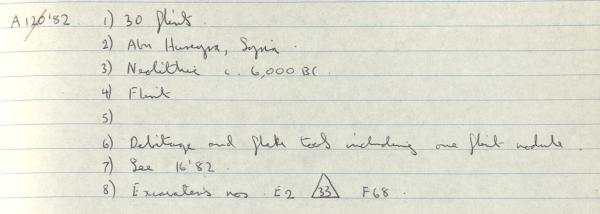 A120'82 1) 30 flints.
2) Abu Hureyra, Syria.
3) Neolithic c. 6,000 BC.
4) Flint
5)
6) Debitage and flake tools including one flint nodule.
7) See 16'82.
8) Excavation nos E2 33 F68.